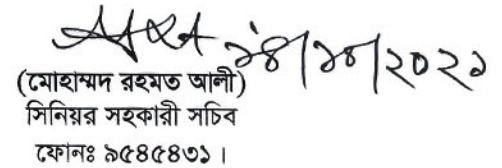 ১৪/১০/২০২১
(মোহাম্মদ রহমত আলী)
সিনিয়র সহকারী সচিব
ফোনঃ ৯৫৪৫৪৩১।